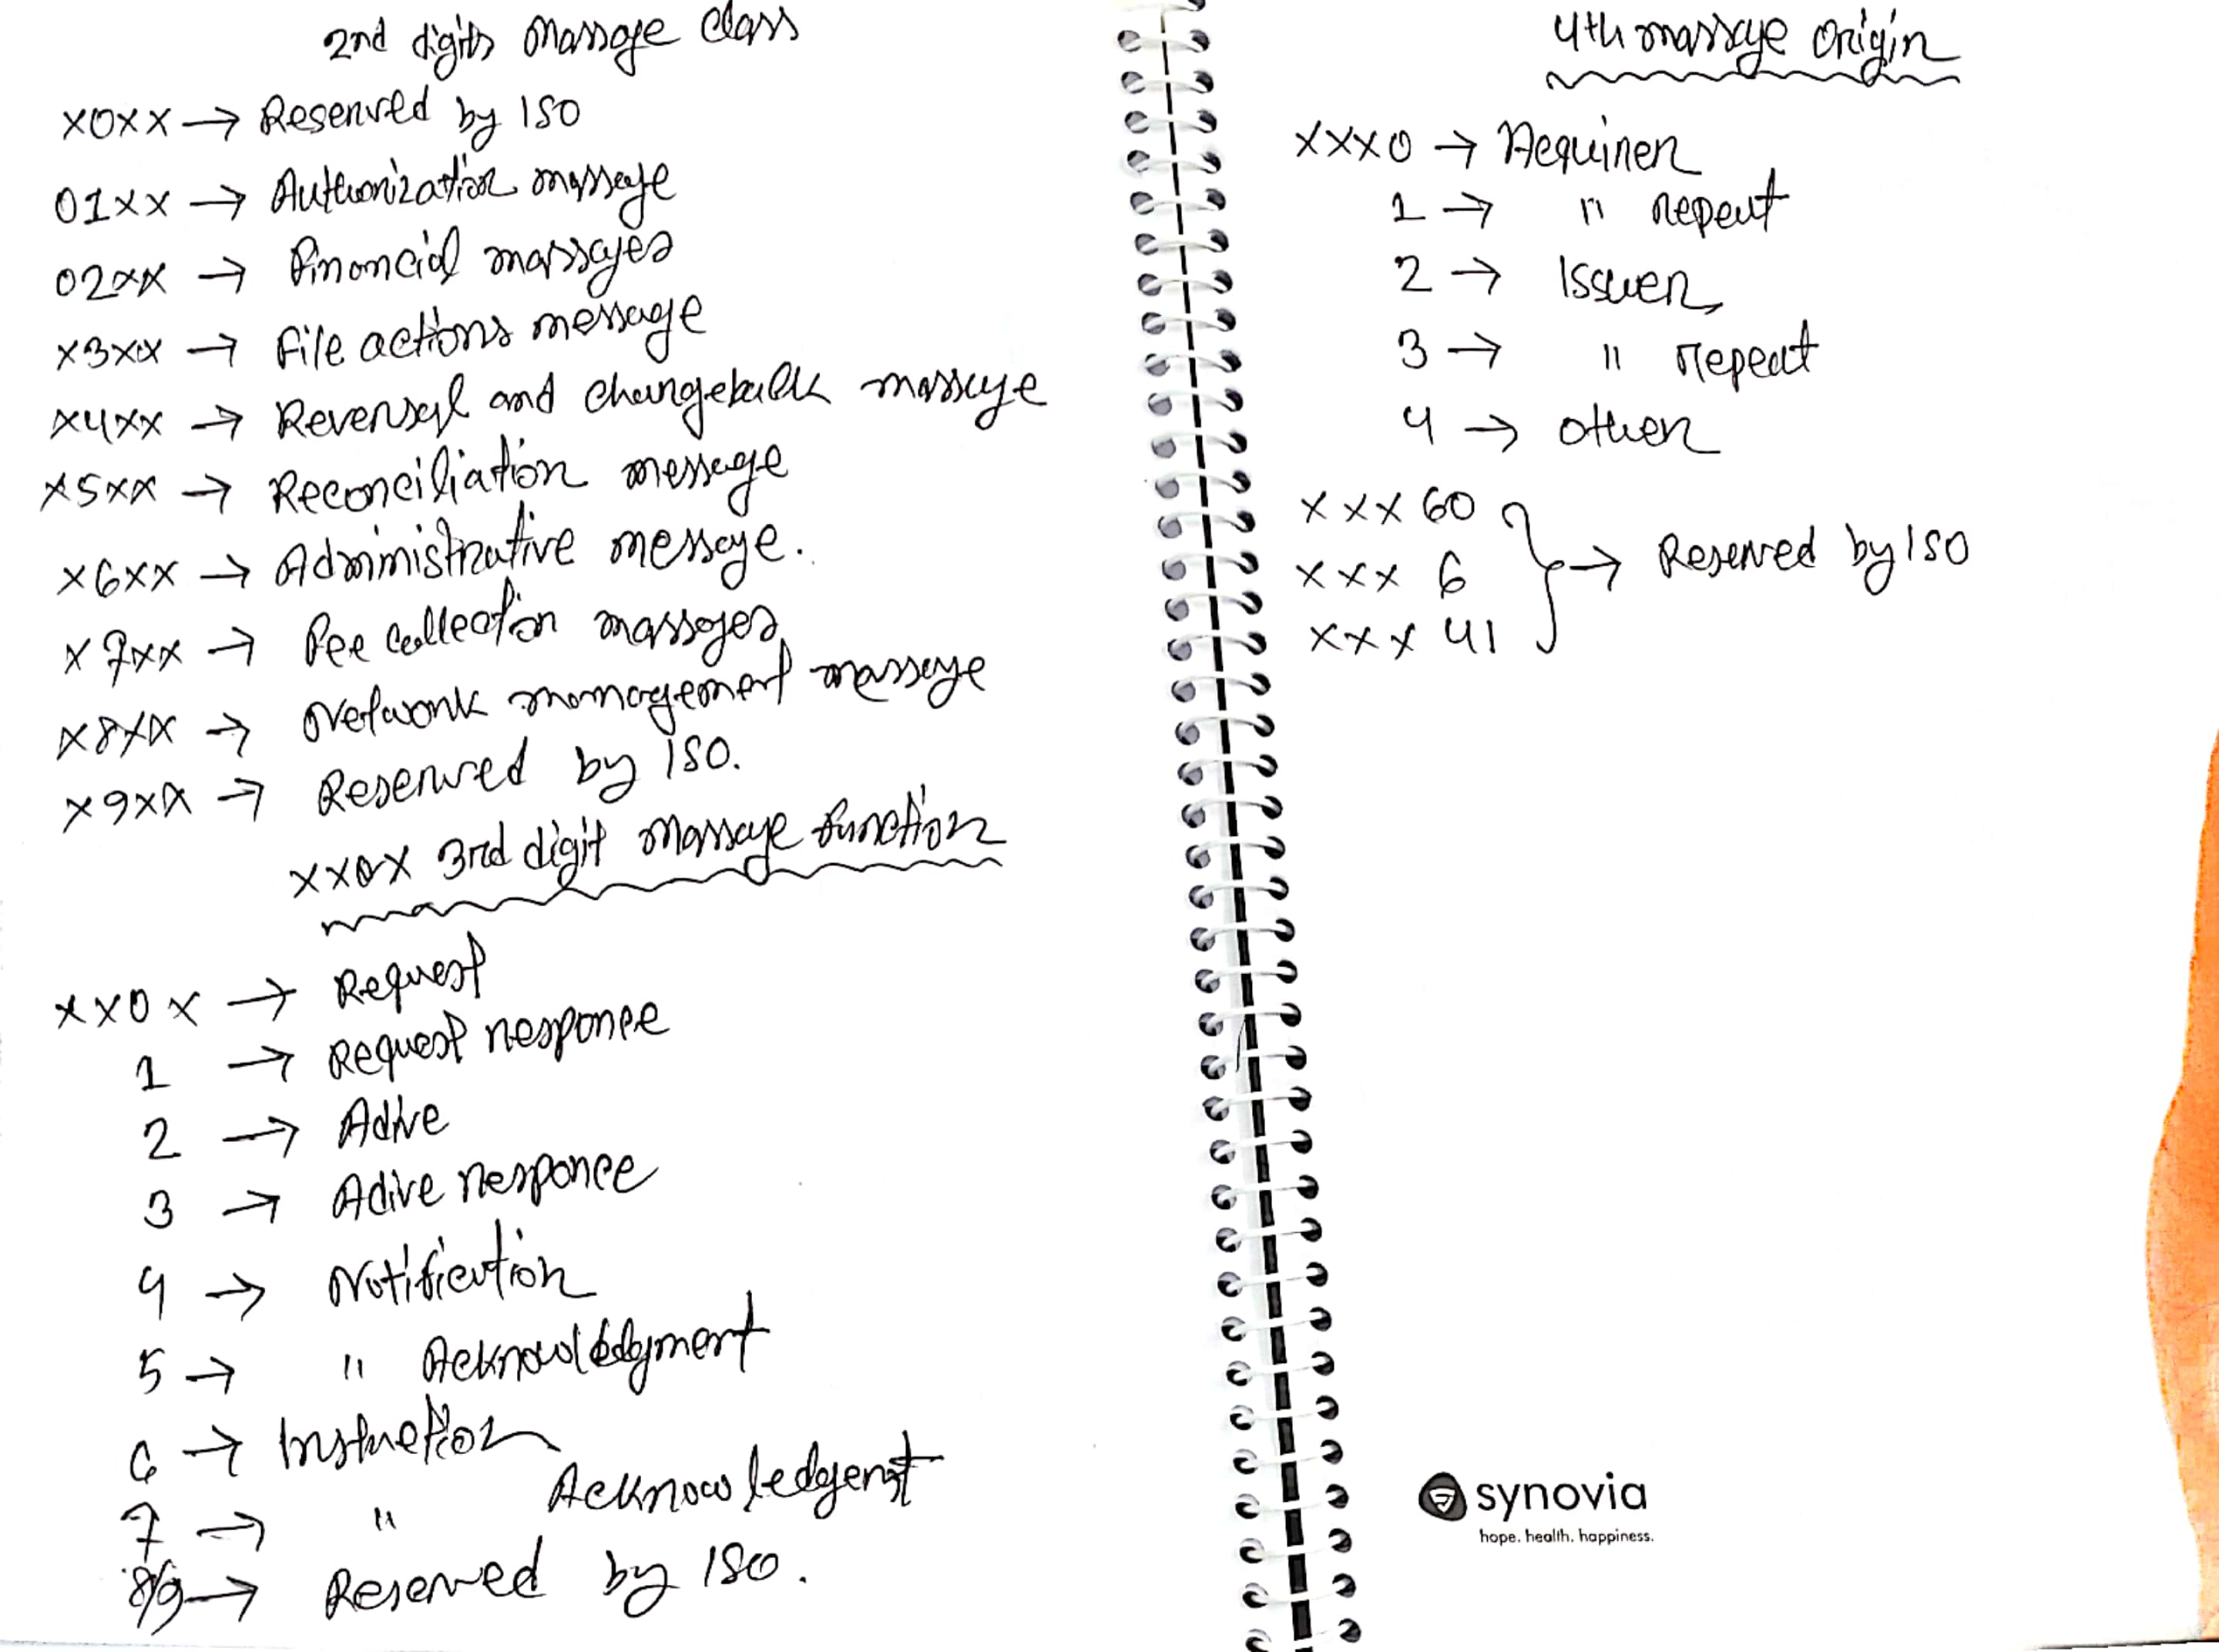 2nd digits massage class
x0xx → Reserved by ISO
01xx → Authorization massage
02xx → financial massages
x3xx → file actions message
x4xx → Reversal and massage
x5xx → Reconciliation message
x6xx → Administrative message.
x7xx → fee collection massages
x8xx → Network management massage
x9xx → Reserved by ISO.
xx0x 3rd digit massage function
xx0x → Request
1 → Request responce
2 → Adive
3 → Adive responce
4 → Notification
5 → " Acknowledgment
6 → Instruction
7 → " Acknowledgent
8/9 → Reserved by ISO.
4th massage origin
xxx0 → Acquirer
1 → " repeat
2 → Issuer
3 → " repeat
4 → other
xxx 60
xxx 6 → Reserved by ISO
xxx 41
synovia
hope. health. happiness.